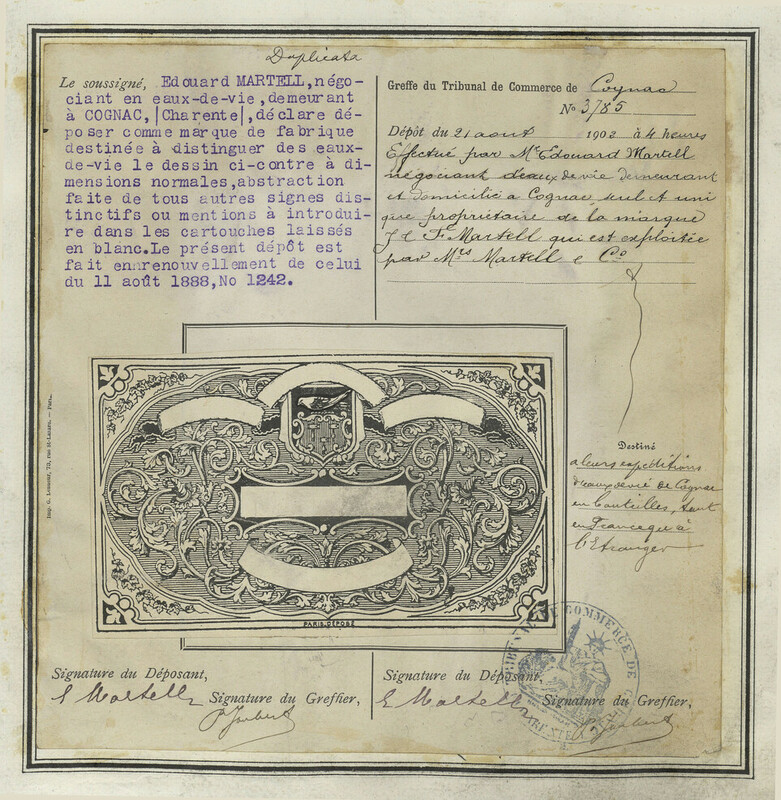 Duplicata
Le soussigné, Edouard MARTELL,négo-
ciant en eaux-de-vie,demeurant
à COGNAC,|Charente|,déclare dé-
poser comme marque de fabrique
destinée à distinguer des eaux-
de-vie le dessin ci-contre à di-
mensions normales,abstraction
faite de tous autres signes dis-
tinctifs ou mentions à introdui-
re dans les cartouches laissés
en blanc.Le présent dépôt est
fait en renouvellement de celui
du 11 août 1888,No 1242.
Greffe du Tribunal de Commerce de Cognac
No 3785
Dépôt du 21 aout 1902 à 4 heures
Effectué par Mr Edouard Martell
négociant d'eaux de vie demeurant
et domicilié a Cognac, seul et uni
que propriétaire de la marque
J & F Martell qui est exploitée
par Mrs Martell & Co
Destiné
a leurs expéditions
d'eaux de vie de Cognac
en bouteilles, tant
en France qu'à
l'Etranger
Imp G. Lesourt, 72, rue St-Lazare. — Paris.
PARIS. DÉPOSÉ
Signature du Déposant,
E Martell
Signature du Greffier,
Joubert
Signature du Déposant,
E Martell
Signature du Greffier,
Joubert
TRIBUNAL DE COMMERCE DE